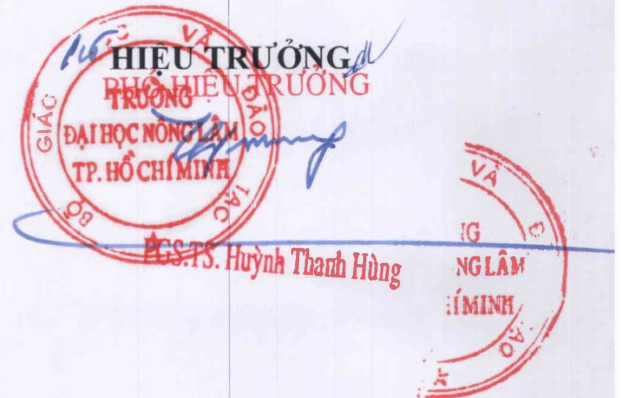 HIỆU TRƯỞNG
PHÓ HIỆU TRƯỞNG
BỘ GIÁO DỤC VÀ ĐÀO TẠO
TRƯỜNG
ĐẠI HỌC NÔNG LÂM
TP. HỒ CHÍ MINH
PGS.TS. Huỳnh Thanh Hùng
VÀ Đ
NG
NG LÂM
Í MINH
ẠO